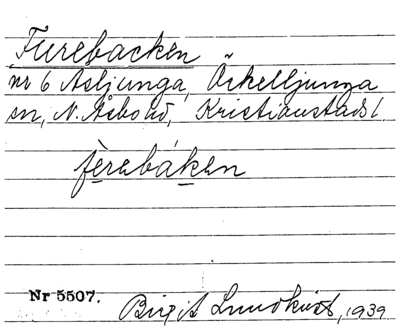 Furebacken
nr 6 Asljunga, Örkelljunga
sn, N. Åsbo hd, Kristianstads l.
fèrebáken
Nr 5507.
Birgit Lundkvist, 1939